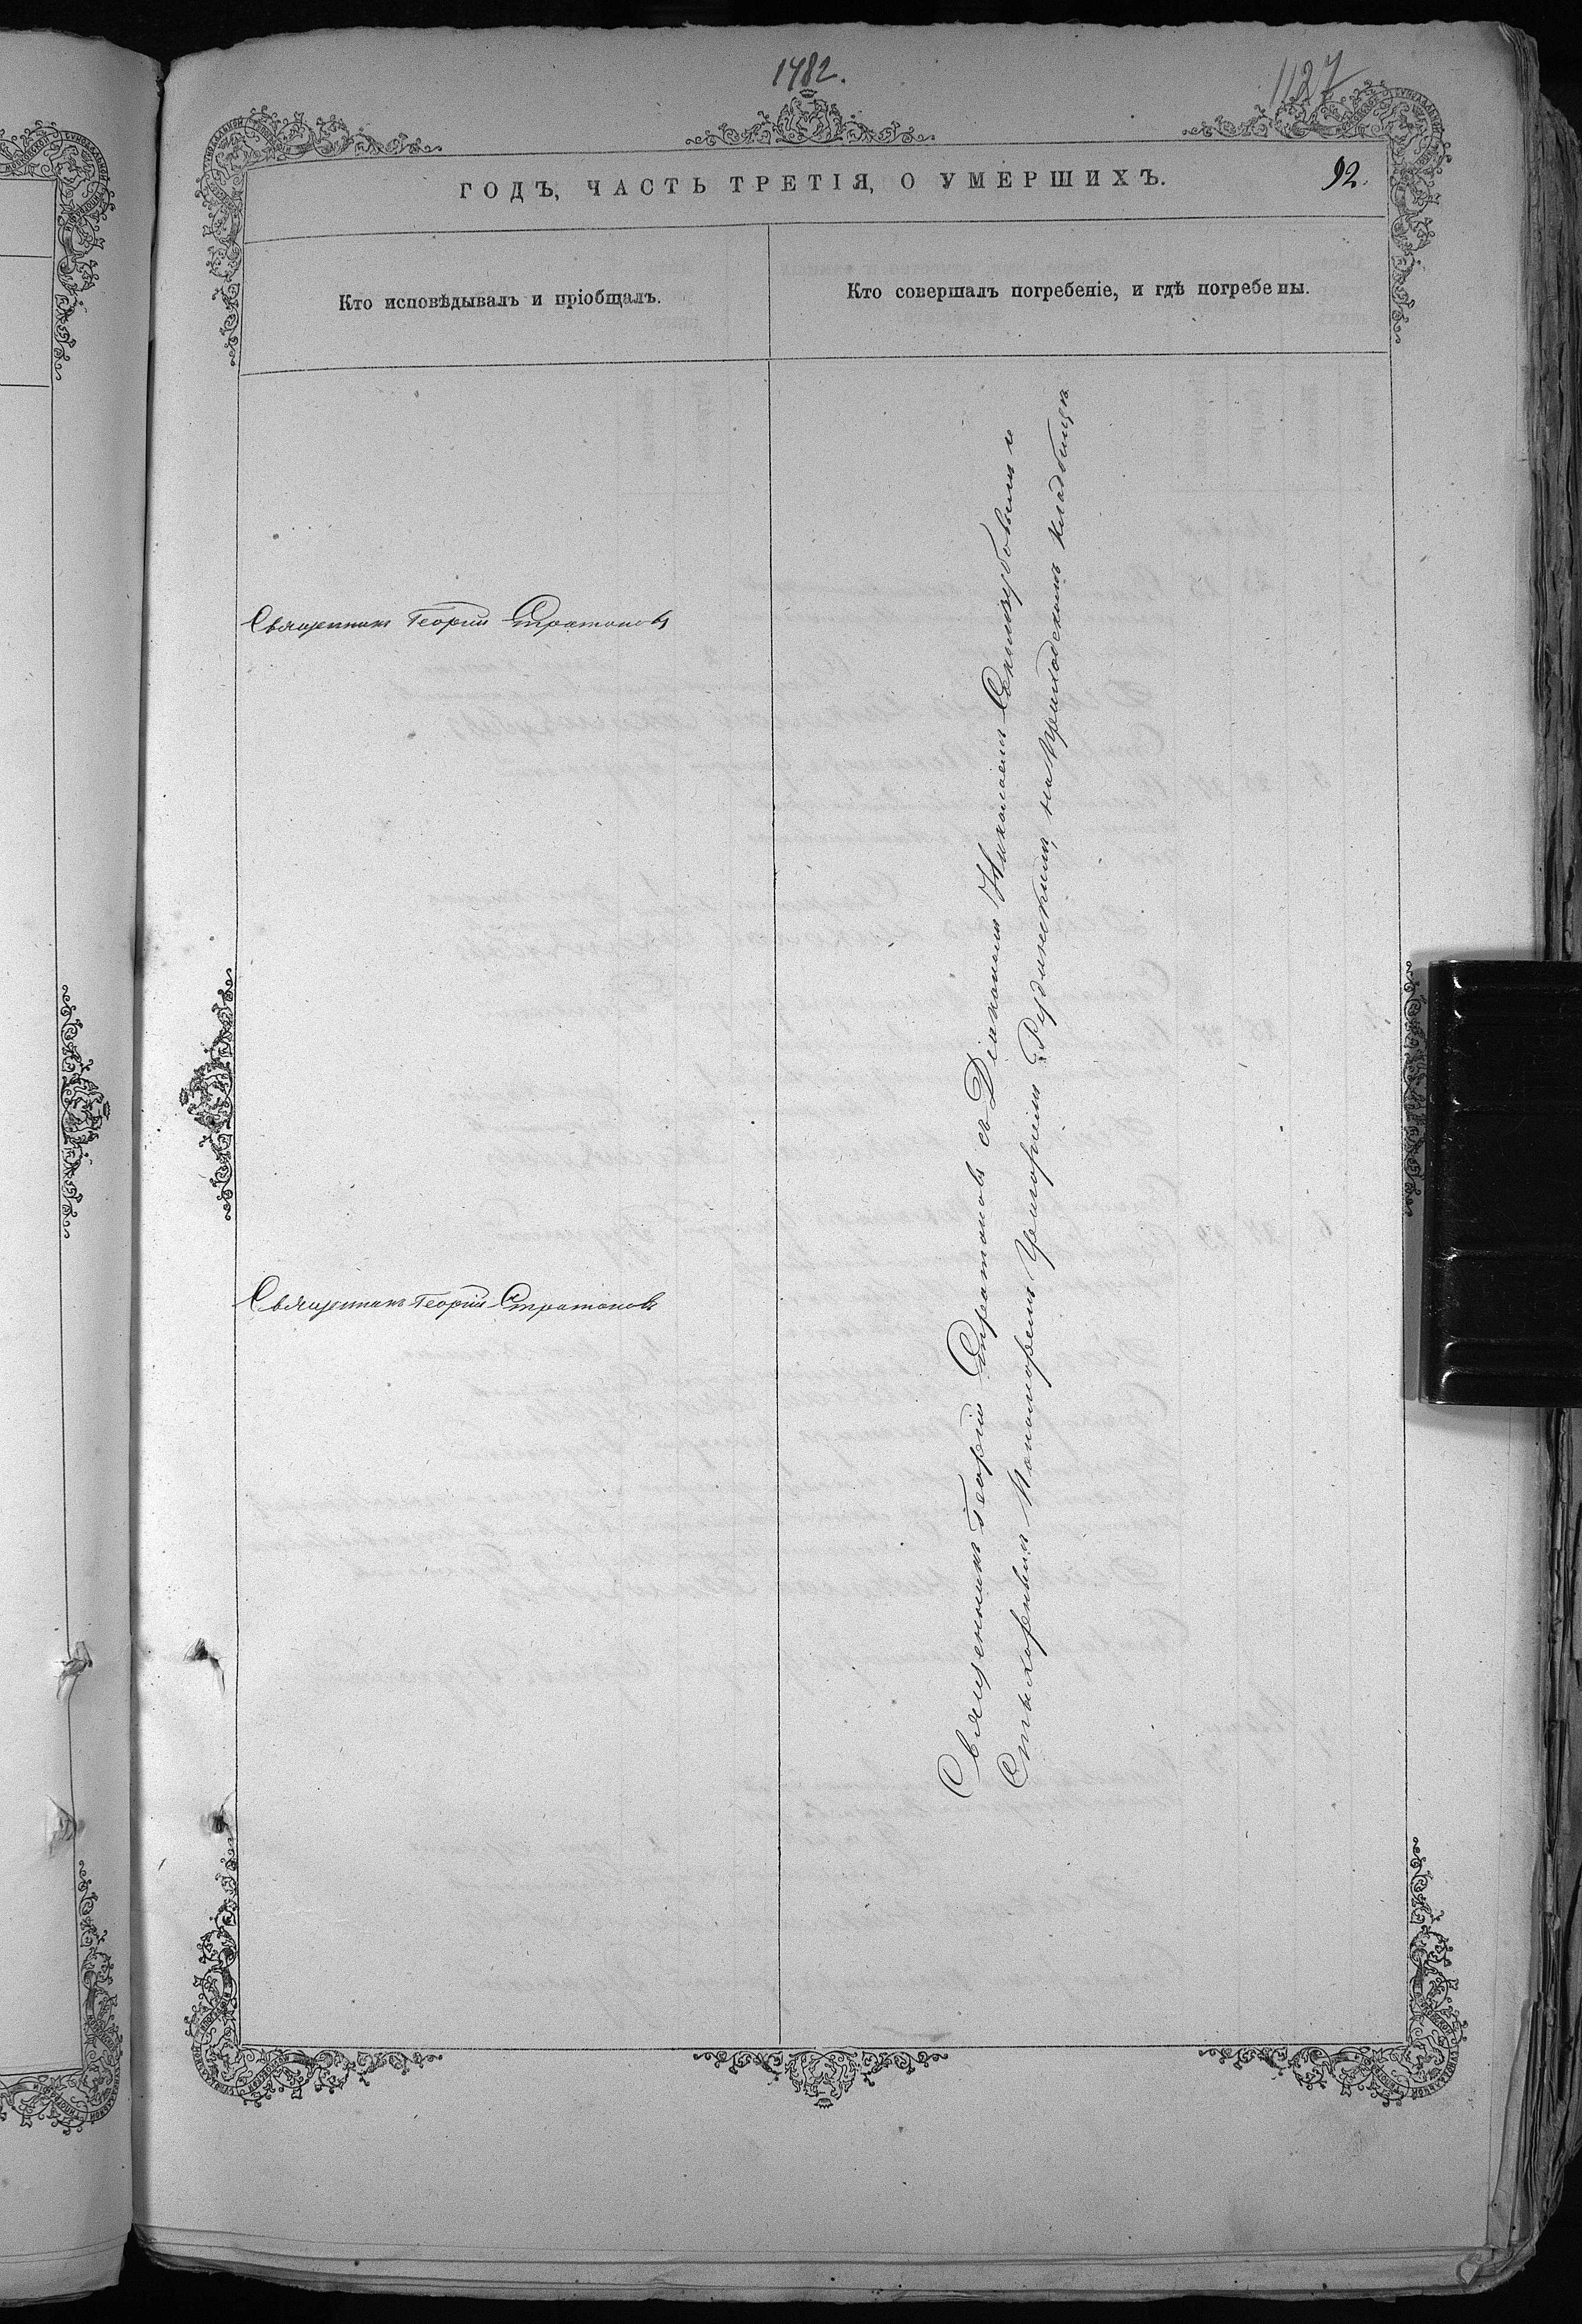 1482.
1127
ГОДЪ, ЧАСТЬ ТРЕТІЯ, О УМЕРШИХЪ.
92.
Кто исповѣдывалъ и пріобщалъ.
Кто совершалъ погребеніе, и гдѣ погребены.
Священникъ Георгій Стратоновъ
Священникъ Георгій Стратоновъ
Священникъ Георгій Стратоновъ съ Діакономъ Николаемъ и
Стихарнымъ Пономаремъ Григоріемъ Рудинскимъ, на приходскомъ кладбищѣ